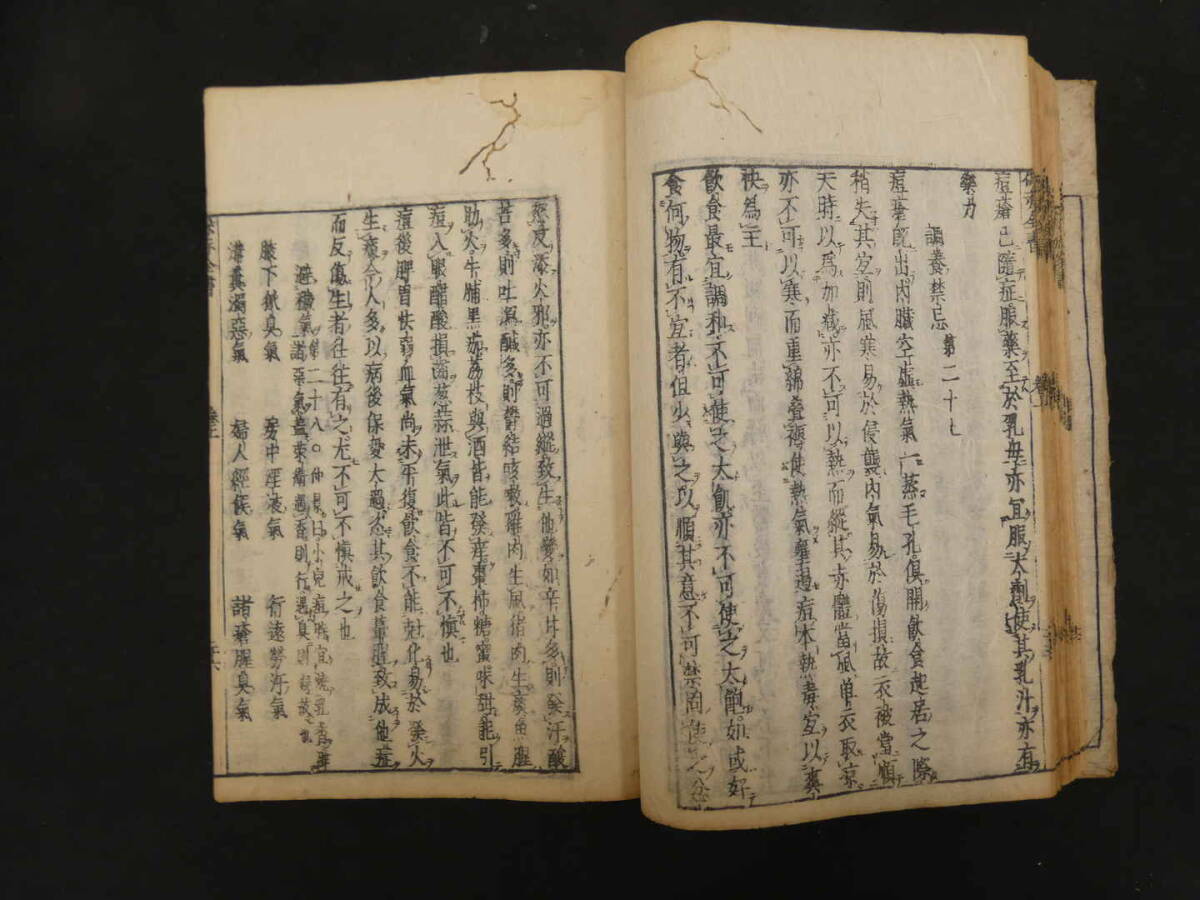 痘瘡已隨症服藥至於乳母亦宜服大劑使其乳汁亦有
藥力
調養禁忌 第二十七
痘瘡既出內臟空虛熱氣一蒸毛孔俱開飲食起居之際
稍失其宜則風寒易於侵襲內氣易於傷損故衣被當順
天時以爲加減亦不可以熱而縱其赤體當風單衣取凉
亦不可以寒而重綿疊褥使熱氣壅遏痘本熱毒宜以爽
快爲主
飲食最宜調和不可使之太飢亦不可使之太飽如或好
食何物有不宜者但少與之以順其意不可禁固使之忿
怒反添火邪亦不可過縱致生他變如辛甘多則發汗酸
苦多則吐瀉鹹多則鬱結咳嗽雞肉生風猪肉生痰魚腥
助火牛脯黑茄荔枝與酒皆能發痒棗柿糖蜜味甜能引
痘入眼醋酸損齒葱蒜泄氣此皆不可不愼也
痘後脾胃怯弱血氣尚未平復飲食不能尅化易於發火
生痰今人多以病後保愛太過恣其飲食葷腥致成他症
而反傷生者往往有之尤不可不愼戒之也
避穢氣第二十八
腋下狐臭氣 房中淫液氣 行遠勞汗氣
溝糞濁惡氣 婦人經候氣 諸瘡腥臭氣